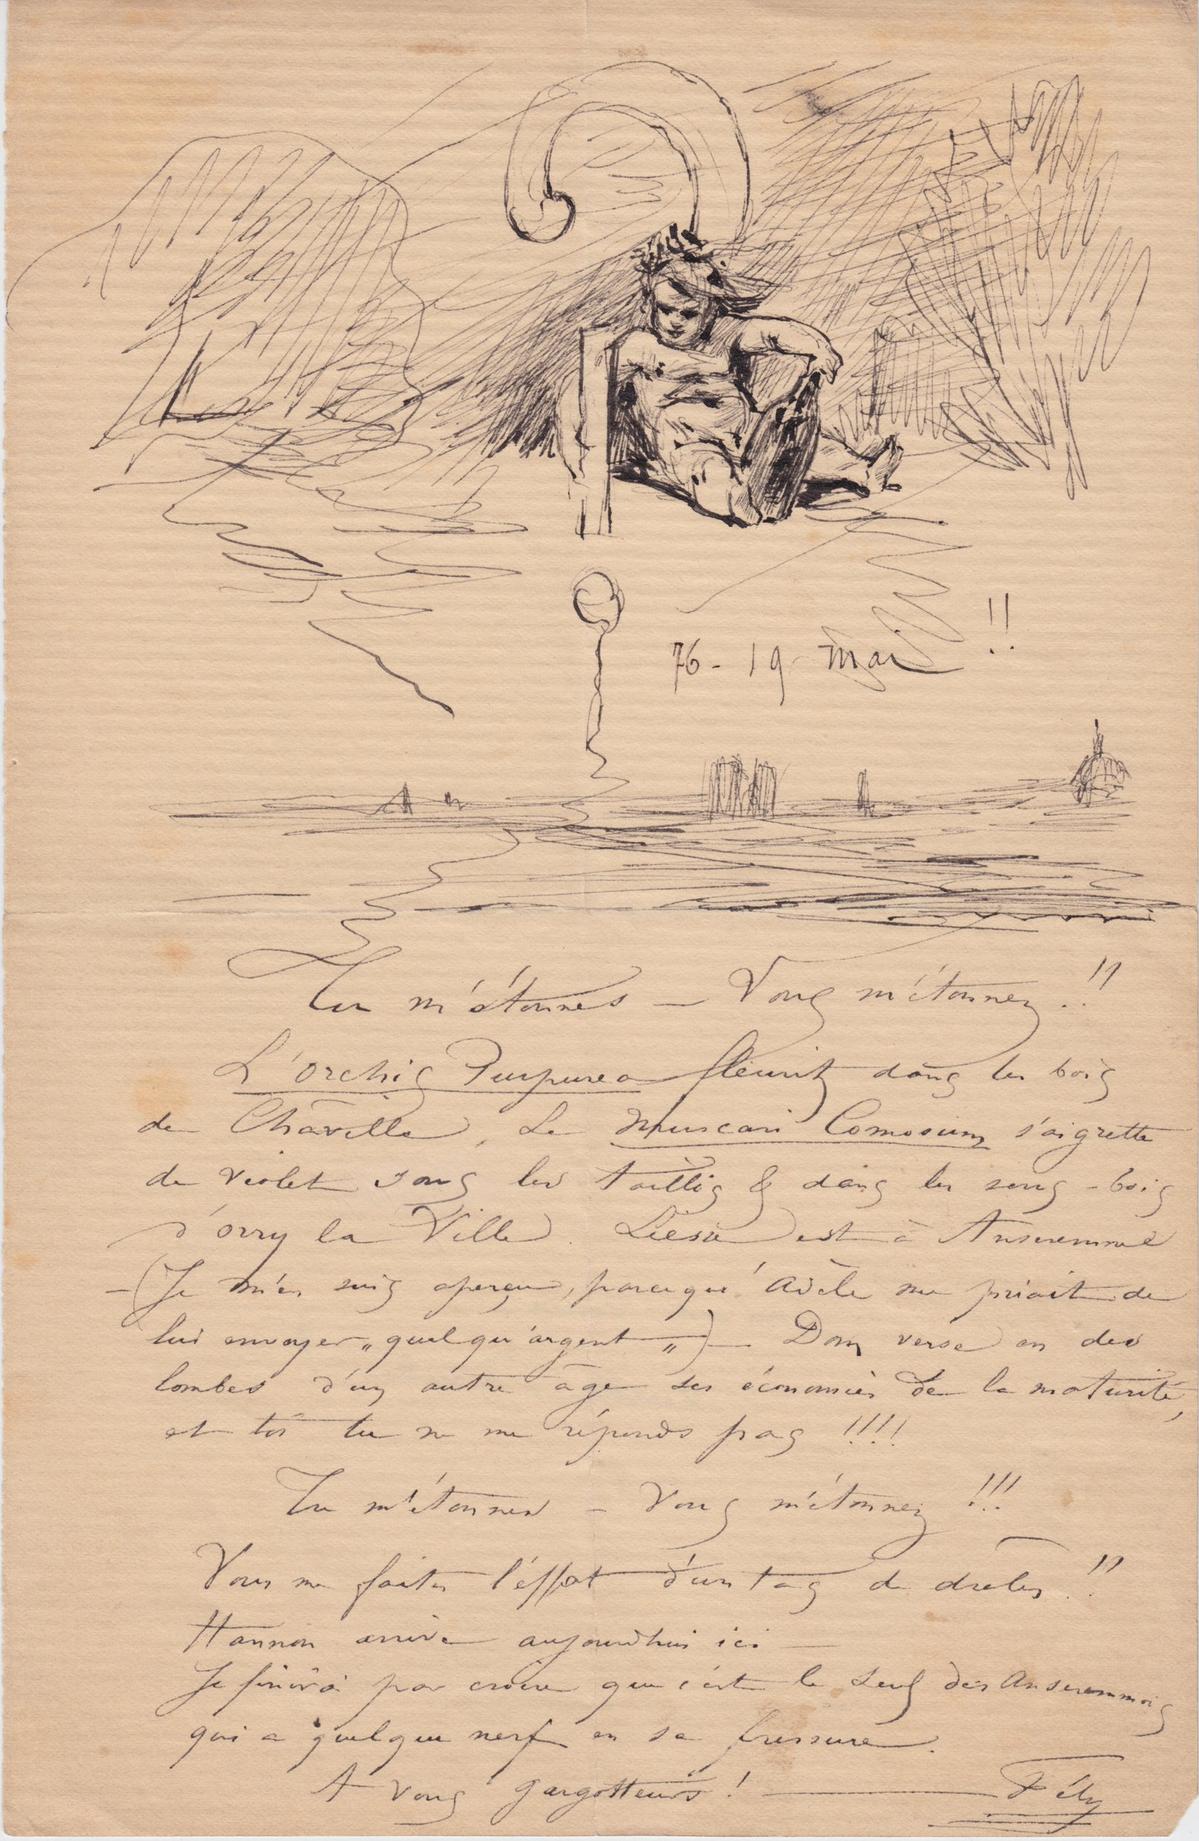 76 - 19 mai !!
Tu m'étonnes — Vous m'étonnez !!
L'orchis Purpurea fleurit dans les bois
de Chaville, Le Muscari Comosum s'aigrette
de violet sous les taillis & dans les sous-bois
d'orry la Ville. Liesse est à Anseremme
— (Je m'en suis aperçu, parcequ'Adèle me priait de
lui envoyer „quelqu'argent„) — Dom verse en des
lombes d'un autre âge ses économies de la maturité,
et toi tu ne me réponds pas !!!!
Tu m'étonnes — Vous m'étonnez !!!
Vous me faites l'éffet d'un tas de drôles !!
Hannon arrive aujourdhui ici —
Je finirai par croire que c'est le seul des Anseremmois
qui a quelque nerf en sa fressure.
A vous gargotteurs ! — Fély